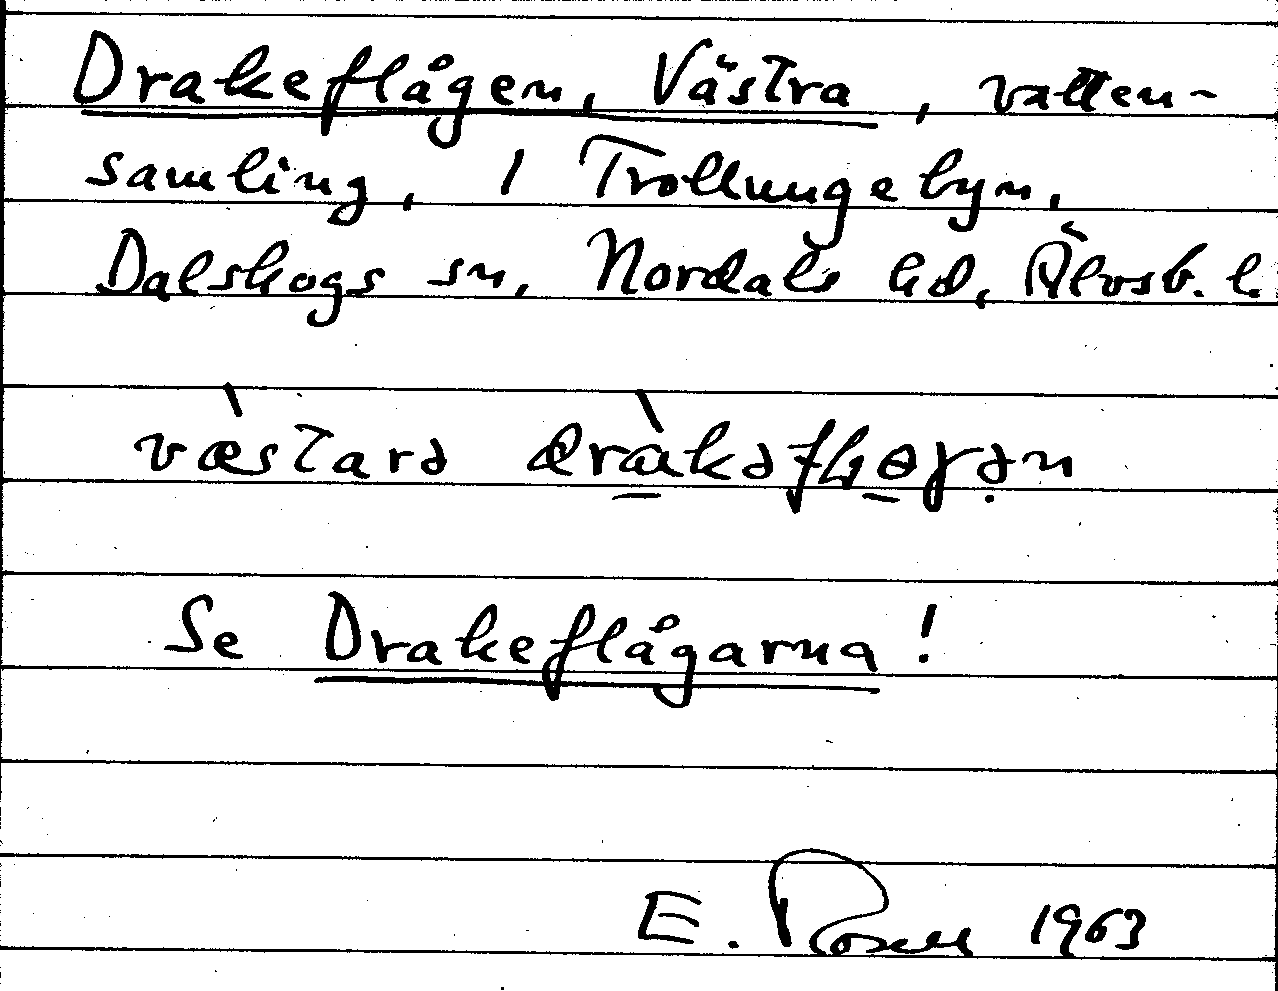 Drakeflågen, Västra, vatten-
samling, i Trollungebyn,
Dalskogs sn, Nordals hd, Älvsb. l.
væ̀starə dràkəflɵɣən
Se Drakeflågarna!
E. Rosell 1963